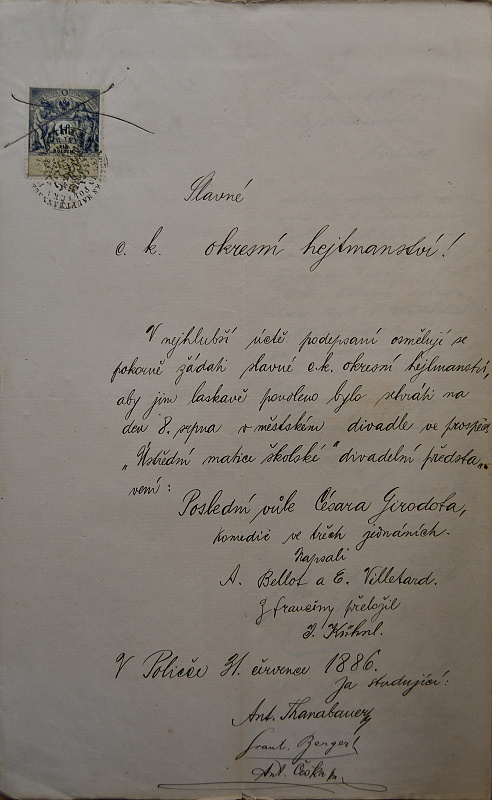 Slavné
c. k. okresní hejtmanství!
V nejhlubší úctě podepsaní osmělují se
pokorně žádati slavné c.k. okresní hejtmanství,
aby jim laskavě povoleno bylo sehráti na
den 8. srpna v městském divadle ve prospěch
„Ústřední matice školské" divadelní předsta-
vení:
Poslední vůle Césara Girodota,
komedie ve třech jednáních.
Napsali
A. Bellot a E. Villetard.
Z franciny přeložil
J. Kühnl.
V Poličce 31. července 1886.
Za studující:
Ant. Thanabauer
Frant. Berger
Ant.